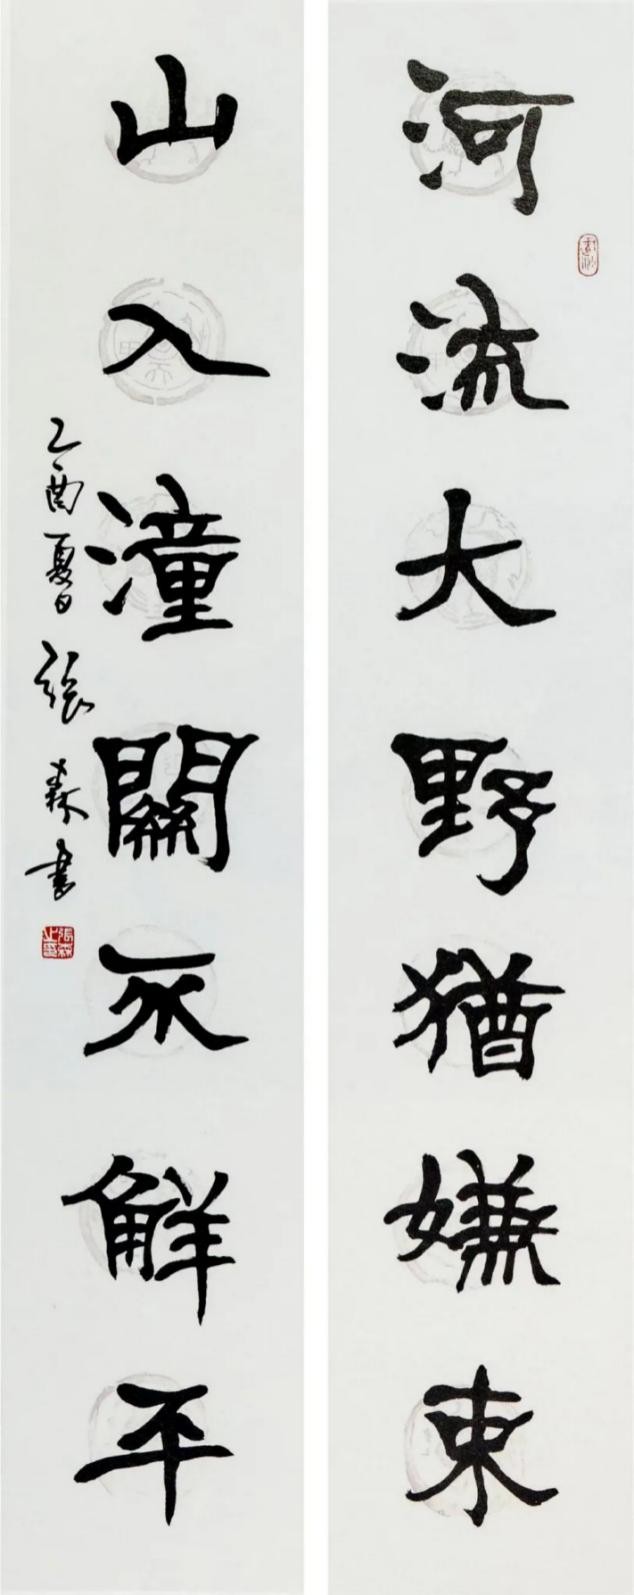 河流大野猶嫌束
山入潼關不觧平
乙酉夏日 張森書
張森之印